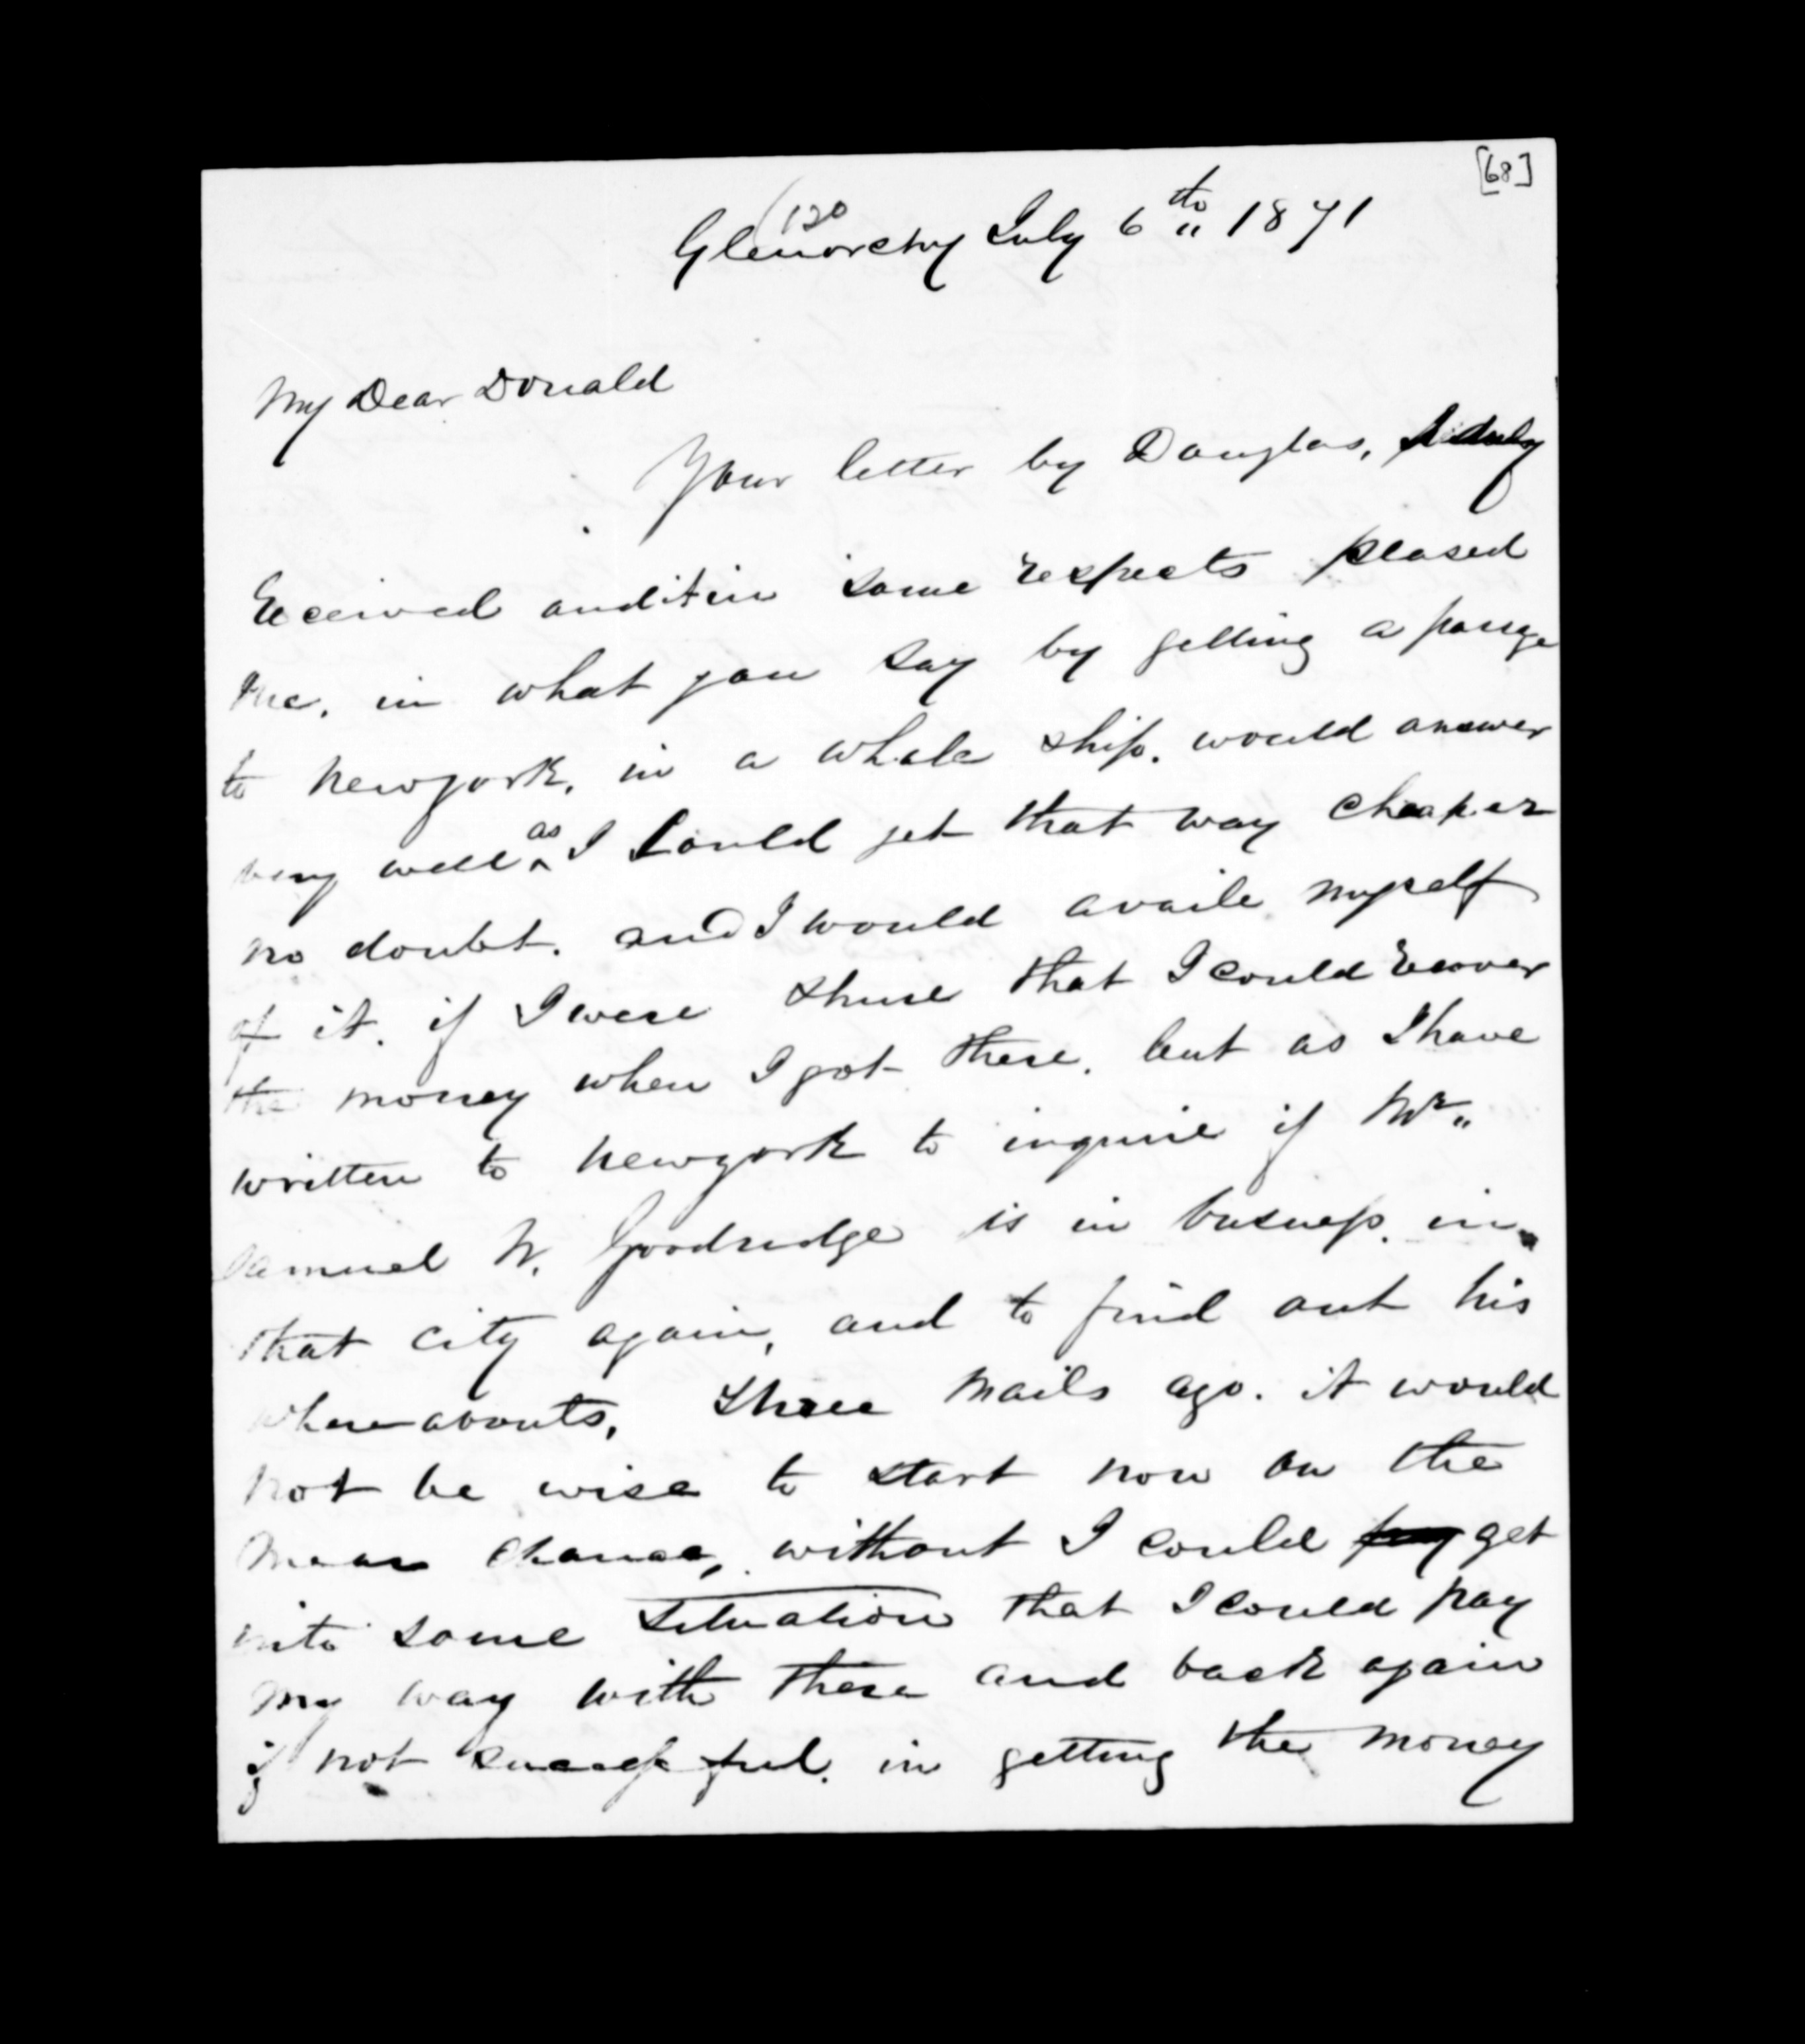 [68]
(120
Glenorchy July 6th 1871
My Dear Donald
Your letter by Douglas, I duly
Received and it in some respects plased
me. in what you say by getting a passage
to Newyork, in a whale ship. would answer
very well as I could get that way cheaper
no doubt. and I would availe myself
of it. if I were shure that I could recover
the money when I got there. but as I have
written to Newyork to inquire if Mr
Samuel W. Goodridge is in business in
that city again, and to find out his
whereabouts, three mails ago. it would
not be wise to start now on the
mear chance, without I could get
into some situation that I could pay
my way with there and back again
if not successful. in getting the money